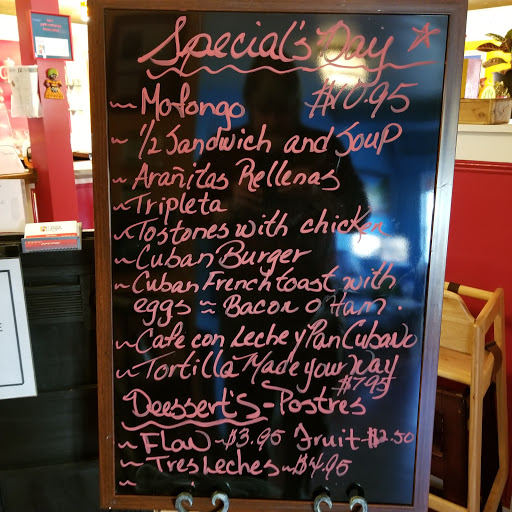 Special's Day
~ Mofongo $10.95
~ 1/2 Sandwich and Soup
~ Arañitas Rellenas
~ Tripleta
~ Tostones with chicken
~ Cuban Burger
~ Cuban French toast with
eggs ≈ Bacon o Ham.
~ Cafe con Leche y Pan Cubano
~ Tortilla Made your Way
$7.95
Deessert's - Postres
~ Flan ~ $3.95 Fruit - $2.50
~ Tres Leches ~ $4.95
~